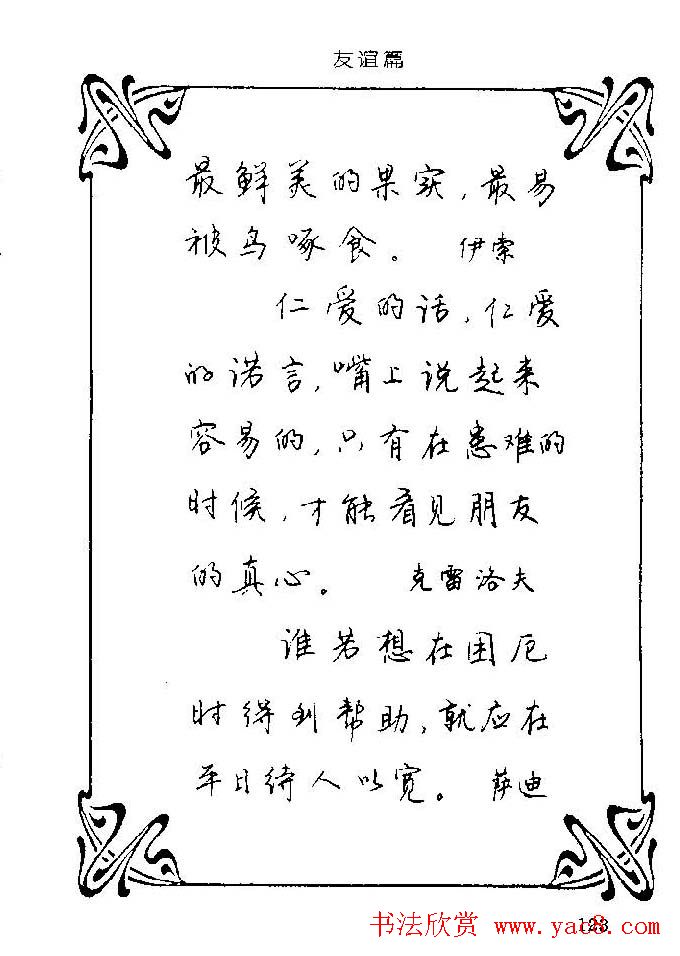 友谊篇
最鲜美的果实，最易
被鸟啄食。 伊索
仁爱的话，仁爱
的诺言，嘴上说起来
容易的，只有在患难的
时候，才能看见朋友
的真心。 克雷洛夫
谁若想在困厄
时得到帮助，就应在
平日待人以宽。 萨迪
123
书法欣赏 www.yac8.com